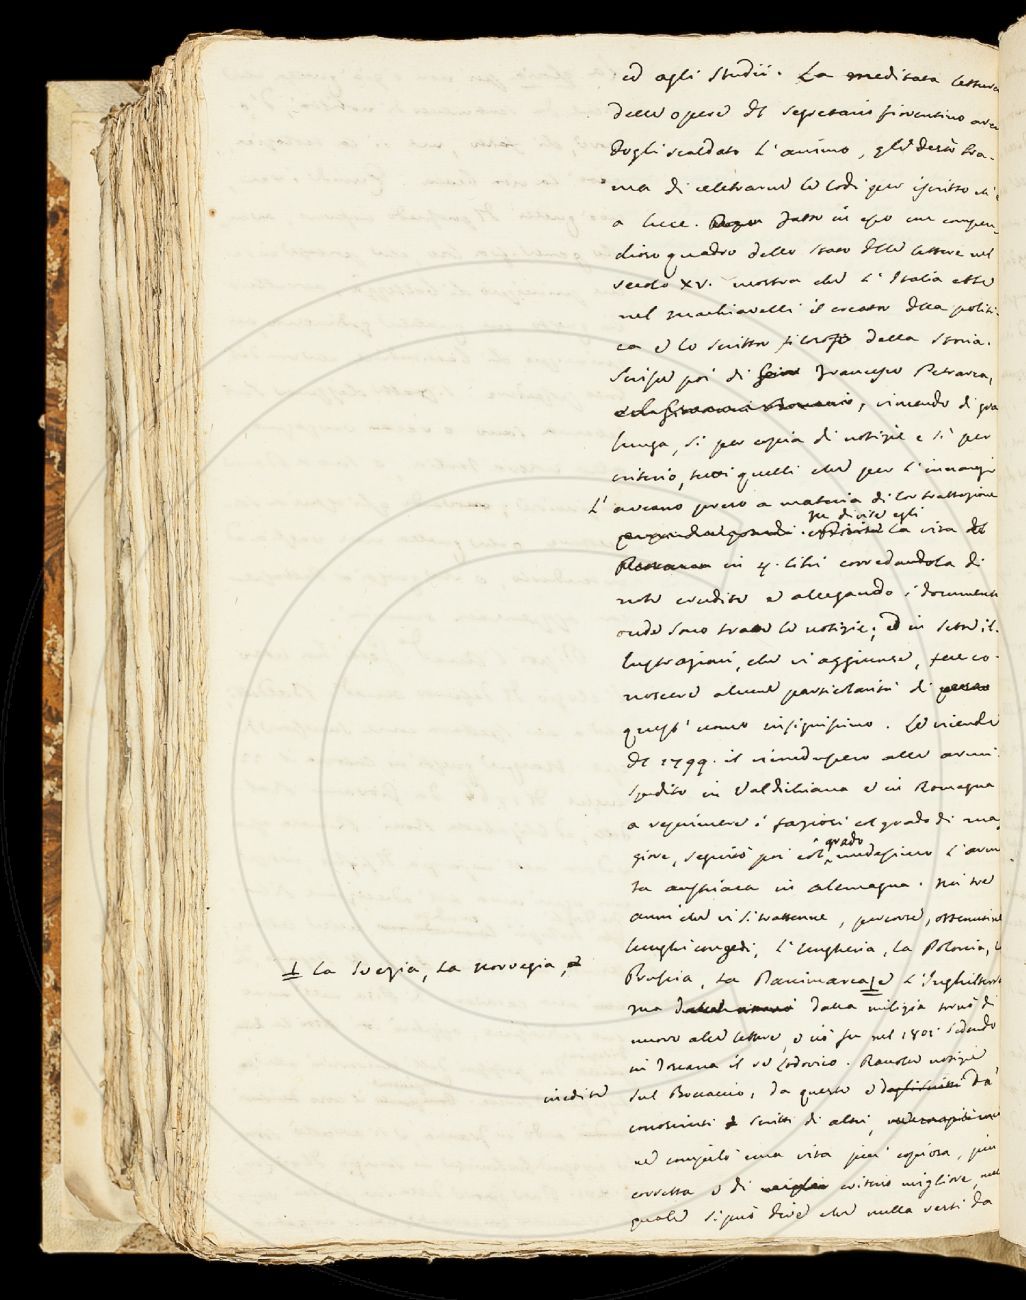 ed agli studii. La meditata lettura
delle opere del segretario fiorentino aven
dogli scaldato l'animo, gli destò bra-
ma di celebrarne le lodi per iscritto
a luce. Dato in esso un compen-
dioso quadro dello stato delle lettere nel
secolo XV. mostra che l'Italia ebbe
nel Machiavelli il creator della politi-
ca e lo scrittor filosofo della storia.
Scrisse poi di Francesco Petrarca,
vincendo di gra
lunga, sì per copia di notizie e sì per
criterio, tutti quelli che per l'innanzi
l'aveano preso a materia di lor trattazione
ne divise egli
la vita del
Petrarca in 4. libri corredandola di
note erudite e allegando i documenti
onde sono tratte le notizie; ed in sette il-
lustrazioni, che vi aggiunse, fece co-
noscere alcune particolarità di
quest'uomo insignissimo. Le vicende
del 1799. il
spedito in Valdichiana e in Romagna
a reprimere i faziosi col grado di mag
giore, seguitò poi col medesimo l'arma
grado
ta austriaca in Alemagna. Nei tre
anni che vi si trattenne, percorse, ottenutine
lunghi congedi, l'Ungheria, la Polonia, l
⊥ la Svezia, la Norvegia,
Prussia, la Danimarca ⊥ e l'Inghilterra
ma dalla milizia tornò di
nuovo alle lettere, e ciò fu nel 1801 sedendo
in Toscana il re Lodovico. Raccolse notizie
inedite
sul Boccaccio, da queste e da
conosciuti scritti di altri,
ne compilò una vita più copiosa, più
corretta e di criterio migliore, nella
quale si può dire che nulla resti da